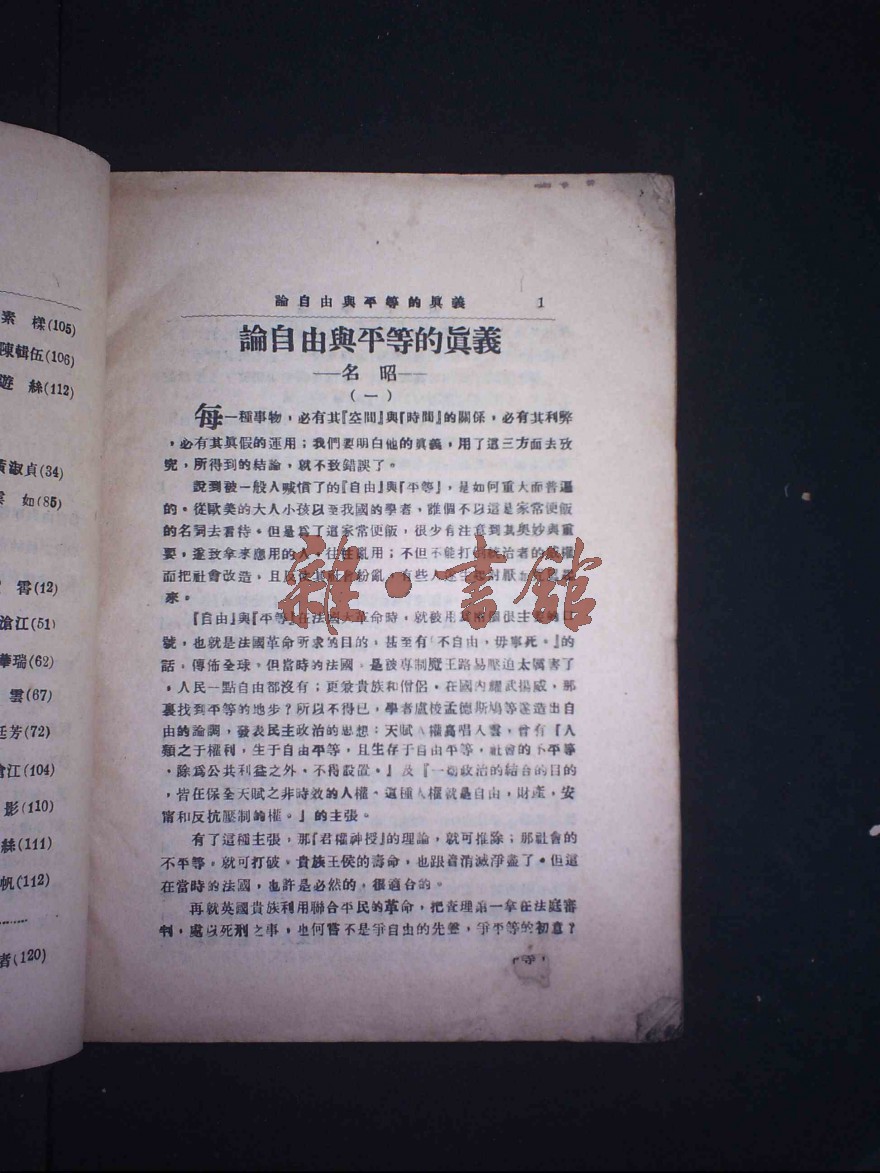 素 櫟(105)
陳輯伍(106)
遊 絲(112)
黃淑貞(34)
雲 如(85)
霄(12)
滄江(51)
華瑞(62)
雲(67)
廷芳(72)
滄江(104)
影(110)
絲(111)
帆(112)
者(120)
論自由與平等的眞義 1
論自由與平等的眞義
——名 昭——
(一)
每一種事物，必有其『空間』與『時間』的關係，必有其利弊
，必有其眞假的運用；我們要明白他的眞義，用了這三方面去攷
究，所得到的結論，就不致錯誤了。
說到被一般人喊慣了的『自由』與『平等』，是如何重大而普遍
的。從歐美的大人小孩以至我國的學者，誰個不以這是家常便飯
的名詞去看待。但是爲了這家常便飯，很少有注意到其奥妙與重
要，遂致拿來應用的人，往往亂用；不但不能打倒統治者的威權
而把社會改造，且反徒紛亂，有些人
來。
『自由』與『平等』在法國大革命時，就被用爲兩個很主要的口
號，也就是法國革命所求的目的，甚至有『不自由，毋寧死。』的
話，傳佈全球。但當時的法國，是被專制魔王路易壓迫太厲害了
，人民一點自由都沒有；更兼貴族和僧侶，在國內耀武揚威，那
裏找到平等的地步？所以不得已，學者盧梭孟德斯鳩等遂造出自
由的論調，發表民主政治的思想；天賦人權高唱入雲，曾有『人
類之于權利，生于自由平等，且生存于自由平等，社會的不平等
，除爲公共利益之外，不得設置。』及『一切政治的結合的目的
，皆在保全天賦之非時效的人權、這種人權就是自由，財產，安
甯和反抗壓制的權。』的主張。
有了這種主張，那『君權神授』的理論，就可推除；那社會的
不平等，就可打破。貴族王侯的壽命，也跟着消滅淨盡了。但這
在當時的法國，也許是必然的，很適合的。
再就英國貴族利用聯合平民的革命，把查理第一拿在法庭審
判，處以死刑之事，也何嘗不是爭自由的先聲，爭平等的初意？
雜·書館